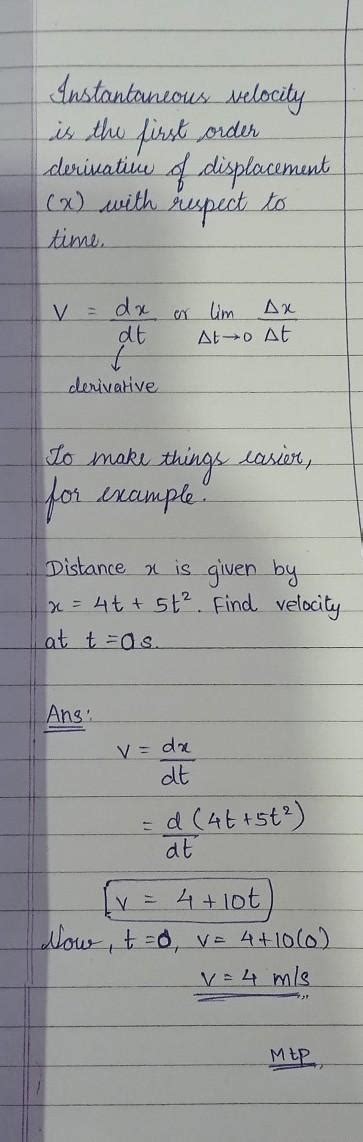 Instantaneous velocity
is the first order
derivative of displacement
(x) with respect to
time.
V = dx/dt or lim Δt→0 Δx/Δt
derivative
To make things easier,
for example.
Distance x is given by
x = 4t + 5t². Find velocity
at t = 0s.
Ans:
v = dx/dt
= d/dt (4t+5t²)
v = 4 + 10t
Now, t = 0, v = 4+10(0)
v = 4 m/s
Mtp